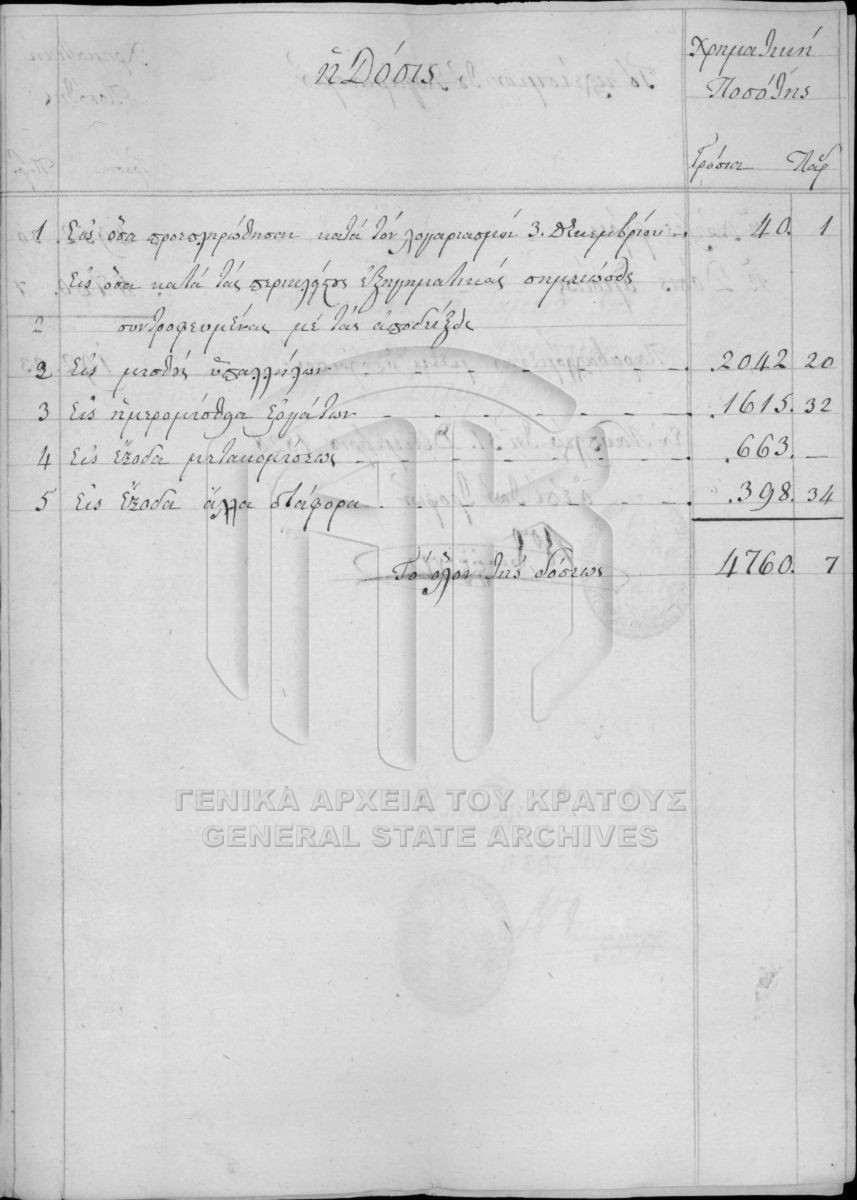 ἡ Δόσις.
Χρηματική
Ποσότης
Γρόσια Παρ
1 Εἰς ὅσα προεπληρώθησαν κατά τόν λογαριασμόν 3. Δεκεμβρίου 40. 1
Εἰς ὅσα κατά τάς περικλείστους ἐξηγηματικάς σημειώσεις
2 συντροφευμένας μέ τάς ἀποδείξεις
2 Εἰς μισθούς ὑπαλλήλων 2042 20
3 Εἰς ἡμερομίσθια ἐργατῶν 1615. 32
4 Εἰς ἔξοδα μετακομίσεως 663. —
5 Εἰς ἔξοδα ἄλλα διάφορα 398. 34
Τό ὅλον τῆς δόσεως 4760. 7
ΓΕΝΙΚΑ ΑΡΧΕΙΑ ΤΟΥ ΚΡΑΤΟΥΣ
GENERAL STATE ARCHIVES